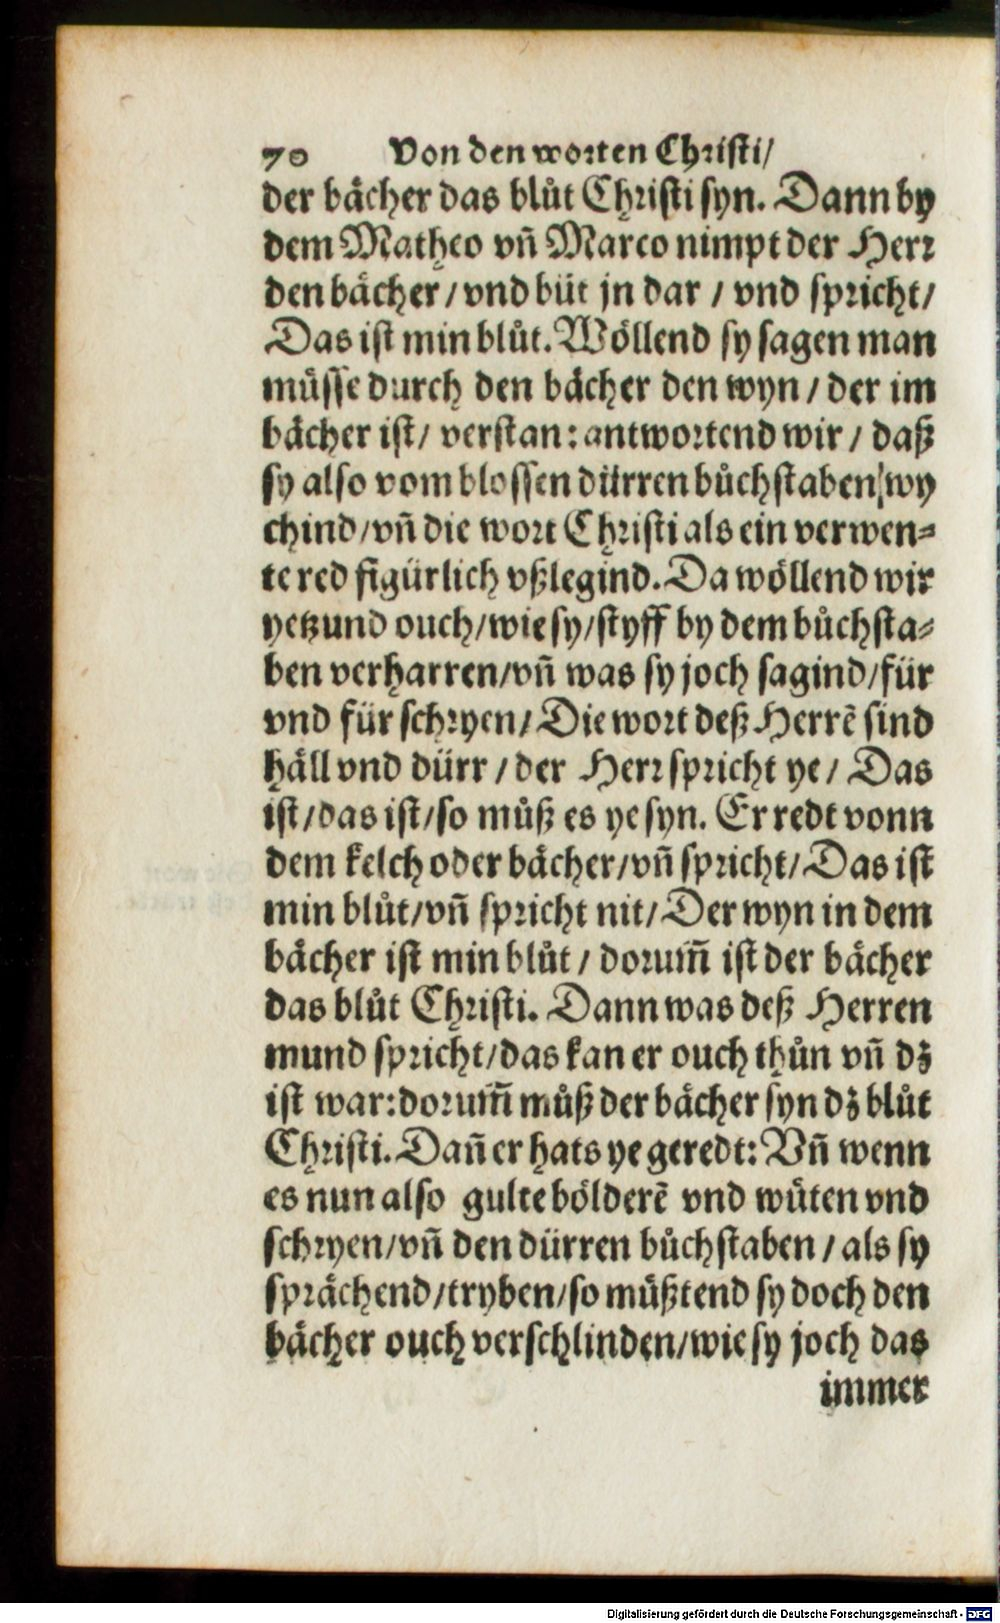 70 Von den worten Christi/
der bächer das blůt Christi syn. Dann by
dem Matheo vn̄ Marco nimpt der Herr
den bächer/vnd büt jn dar / vnd spricht/
Das ist min blůt. Wöllend sy sagen man
müsse durch den bächer den wyn / der im
bächer ist/ verstan: antwortend wir / daß
sy also vom blossen dürren bůchstaben/wy
chind/vn̄ die wort Christi als ein verwen⸗
te red figürlich vßlegind. Da wöllend wir
yetzund ouch/wie sy/styff by dem bůchsta⸗
ben verharren/vn̄ was sy joch sagind/für
vnd für schryen/ Die wort deß Herrē sind
häll vnd dürr / der Herr spricht ye/ Das
ist/das ist/so můß es ye syn. Er redt vonn
dem kelch oder bächer/vn̄ spricht/Das ist
min blůt/vn̄ spricht nit/Der wyn in dem
bächer ist min blůt / dorum̄ ist der bächer
das blůt Christi. Dann was deß Herren
mund spricht/das kan er ouch thůn vn̄ dz
ist war: dorum̄ můß der bächer syn dz blůt
Christi. Dan̄ er hats ye geredt: Vn̄ wenn
es nun also gulte bölderē vnd wüten vnd
schryen/vn̄ den dürren bůchstaben / als sy
sprächend/tryben/so müßtend sy doch den
bächer ouch verschlinden/wie sy joch das
immer
Digitalisierung gefördert durch die Deutsche Forschungsgemeinschaft - DFG